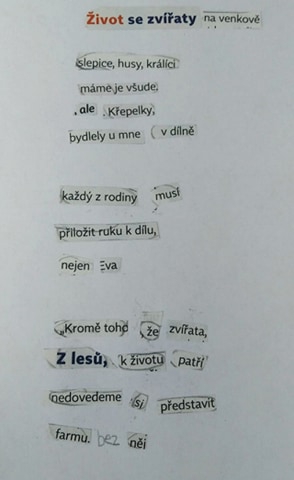 Život se zvířaty na venkově
slepice, husy, králíci
máme je všude.
, ale Křepelky,
bydlely u mne ( v dílně
každý z rodiny musí
přiložit ruku k dílu,
nejen Eva
„Kromě toho že zvířata,
Z lesů, k životu patří
nedovedeme si představit
farmu. bez něj